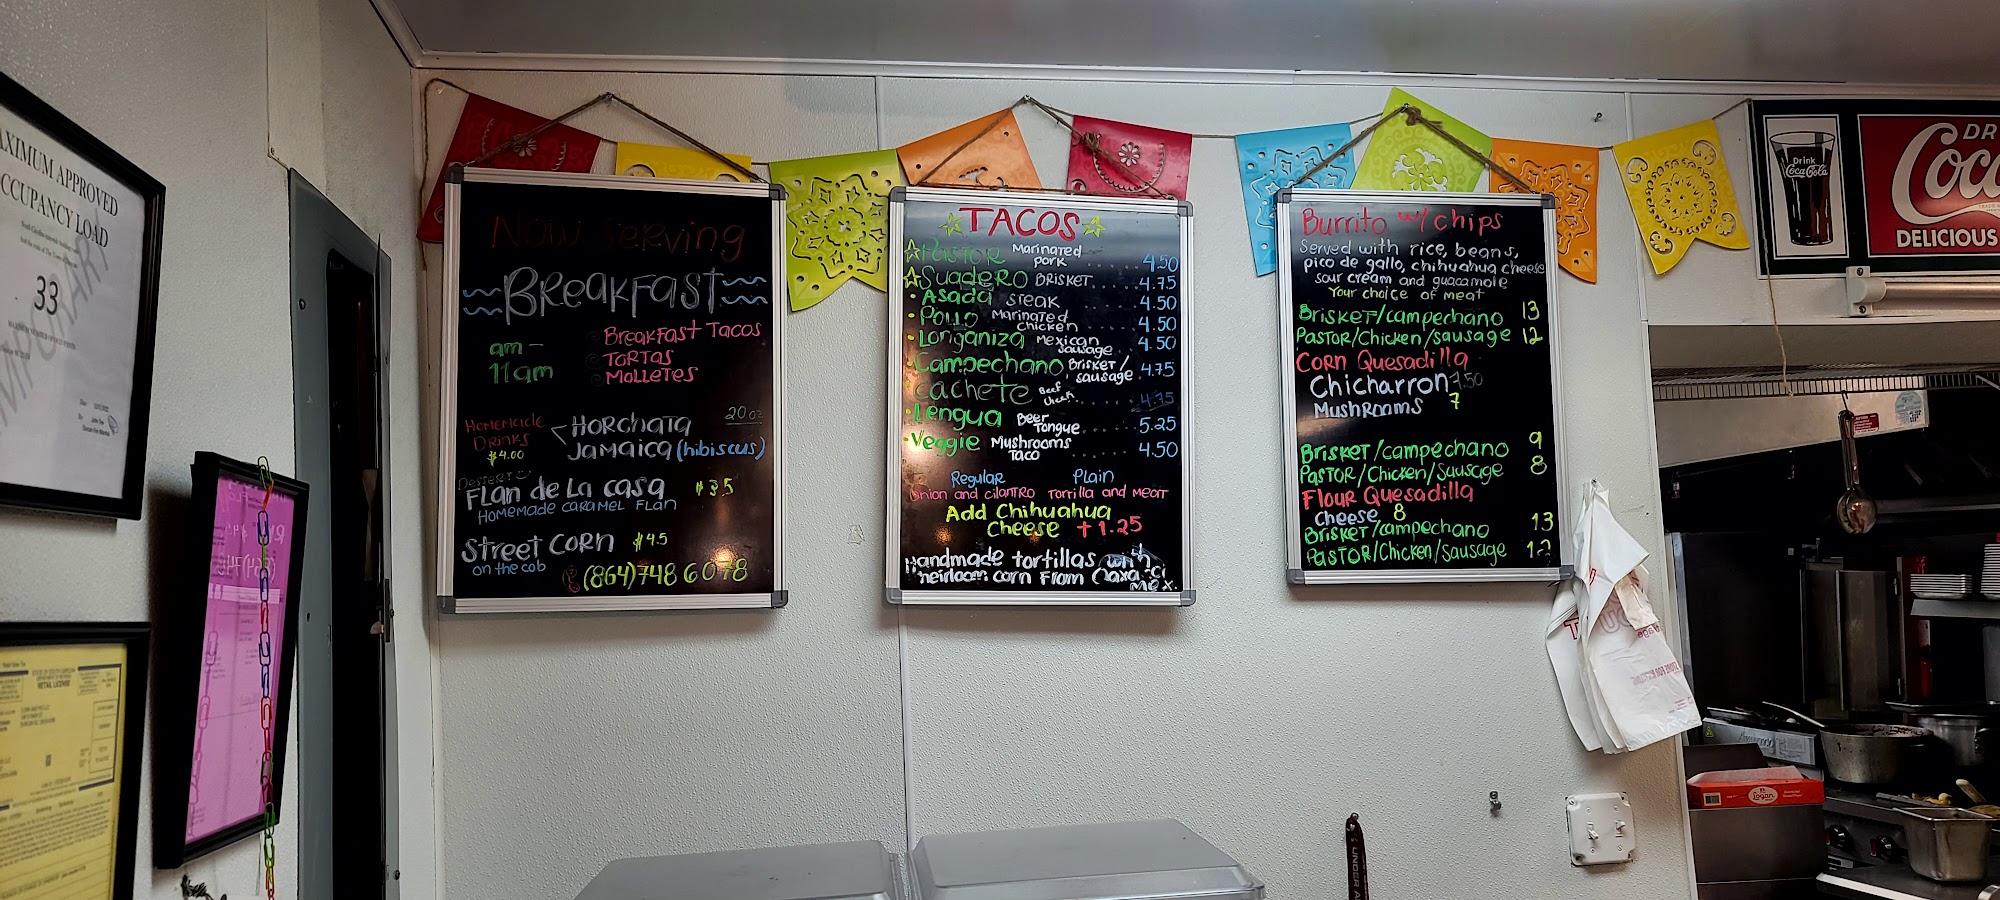 MAXIMUM APPROVED
OCCUPANCY LOAD
33
RETAIL LICENSE
Now Serving
Breakfast
am -
11am
Breakfast Tacos
Tortas
Molletes
Homemade
Drinks
$4.00
20 oz
Horchata
Jamaica (hibiscus)
Dessert
Flan de La casa $3.5
Homemade caramel Flan
Street Corn $4.5
on the cob
(864)748 6078
TACOS
Pastor Marinated pork 4.50
Suadero Brisket 4.75
Asada steak 4.50
Pollo Marinated chicken 4.50
Longaniza Mexican sausage 4.50
Campechano Brisket/ sausage 4.75
Cachete Beef 4.75
Lengua Beef Tongue 5.25
Veggie Mushrooms Taco 4.50
Regular Plain
Onion and cilantro Tortilla and Meat
Add Chihuahua
Cheese +1.25
Handmade tortillas with
heirloom corn From Oaxaca
Mex.
Burrito w/ chips
Served with rice, beans,
pico de gallo, chihuahua cheese
sour cream and guacamole
Your choice of meat
Brisket/campechano 13
Pastor/Chicken/sausage 12
Corn Quesadilla
Chicharron 7.50
Mushrooms 7
Brisket/campechano 9
Pastor/Chicken/Sausage 8
Flour Quesadilla
Cheese 8
Brisket/campechano 13
Pastor/Chicken/Sausage 12
Drink
Coca-Cola
DR
Coca
DELICIOUS
Logan
UNDER A